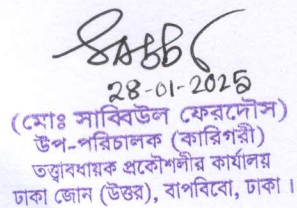 28-01-2025
(মোঃ সাব্বিউল ফেরদৌস)
উপ-পরিচালক (কারিগরী)
তত্ত্বাবধায়ক প্রকৌশলীর কার্যালয়
ঢাকা জোন (উত্তর), বাপবিবো, ঢাকা।